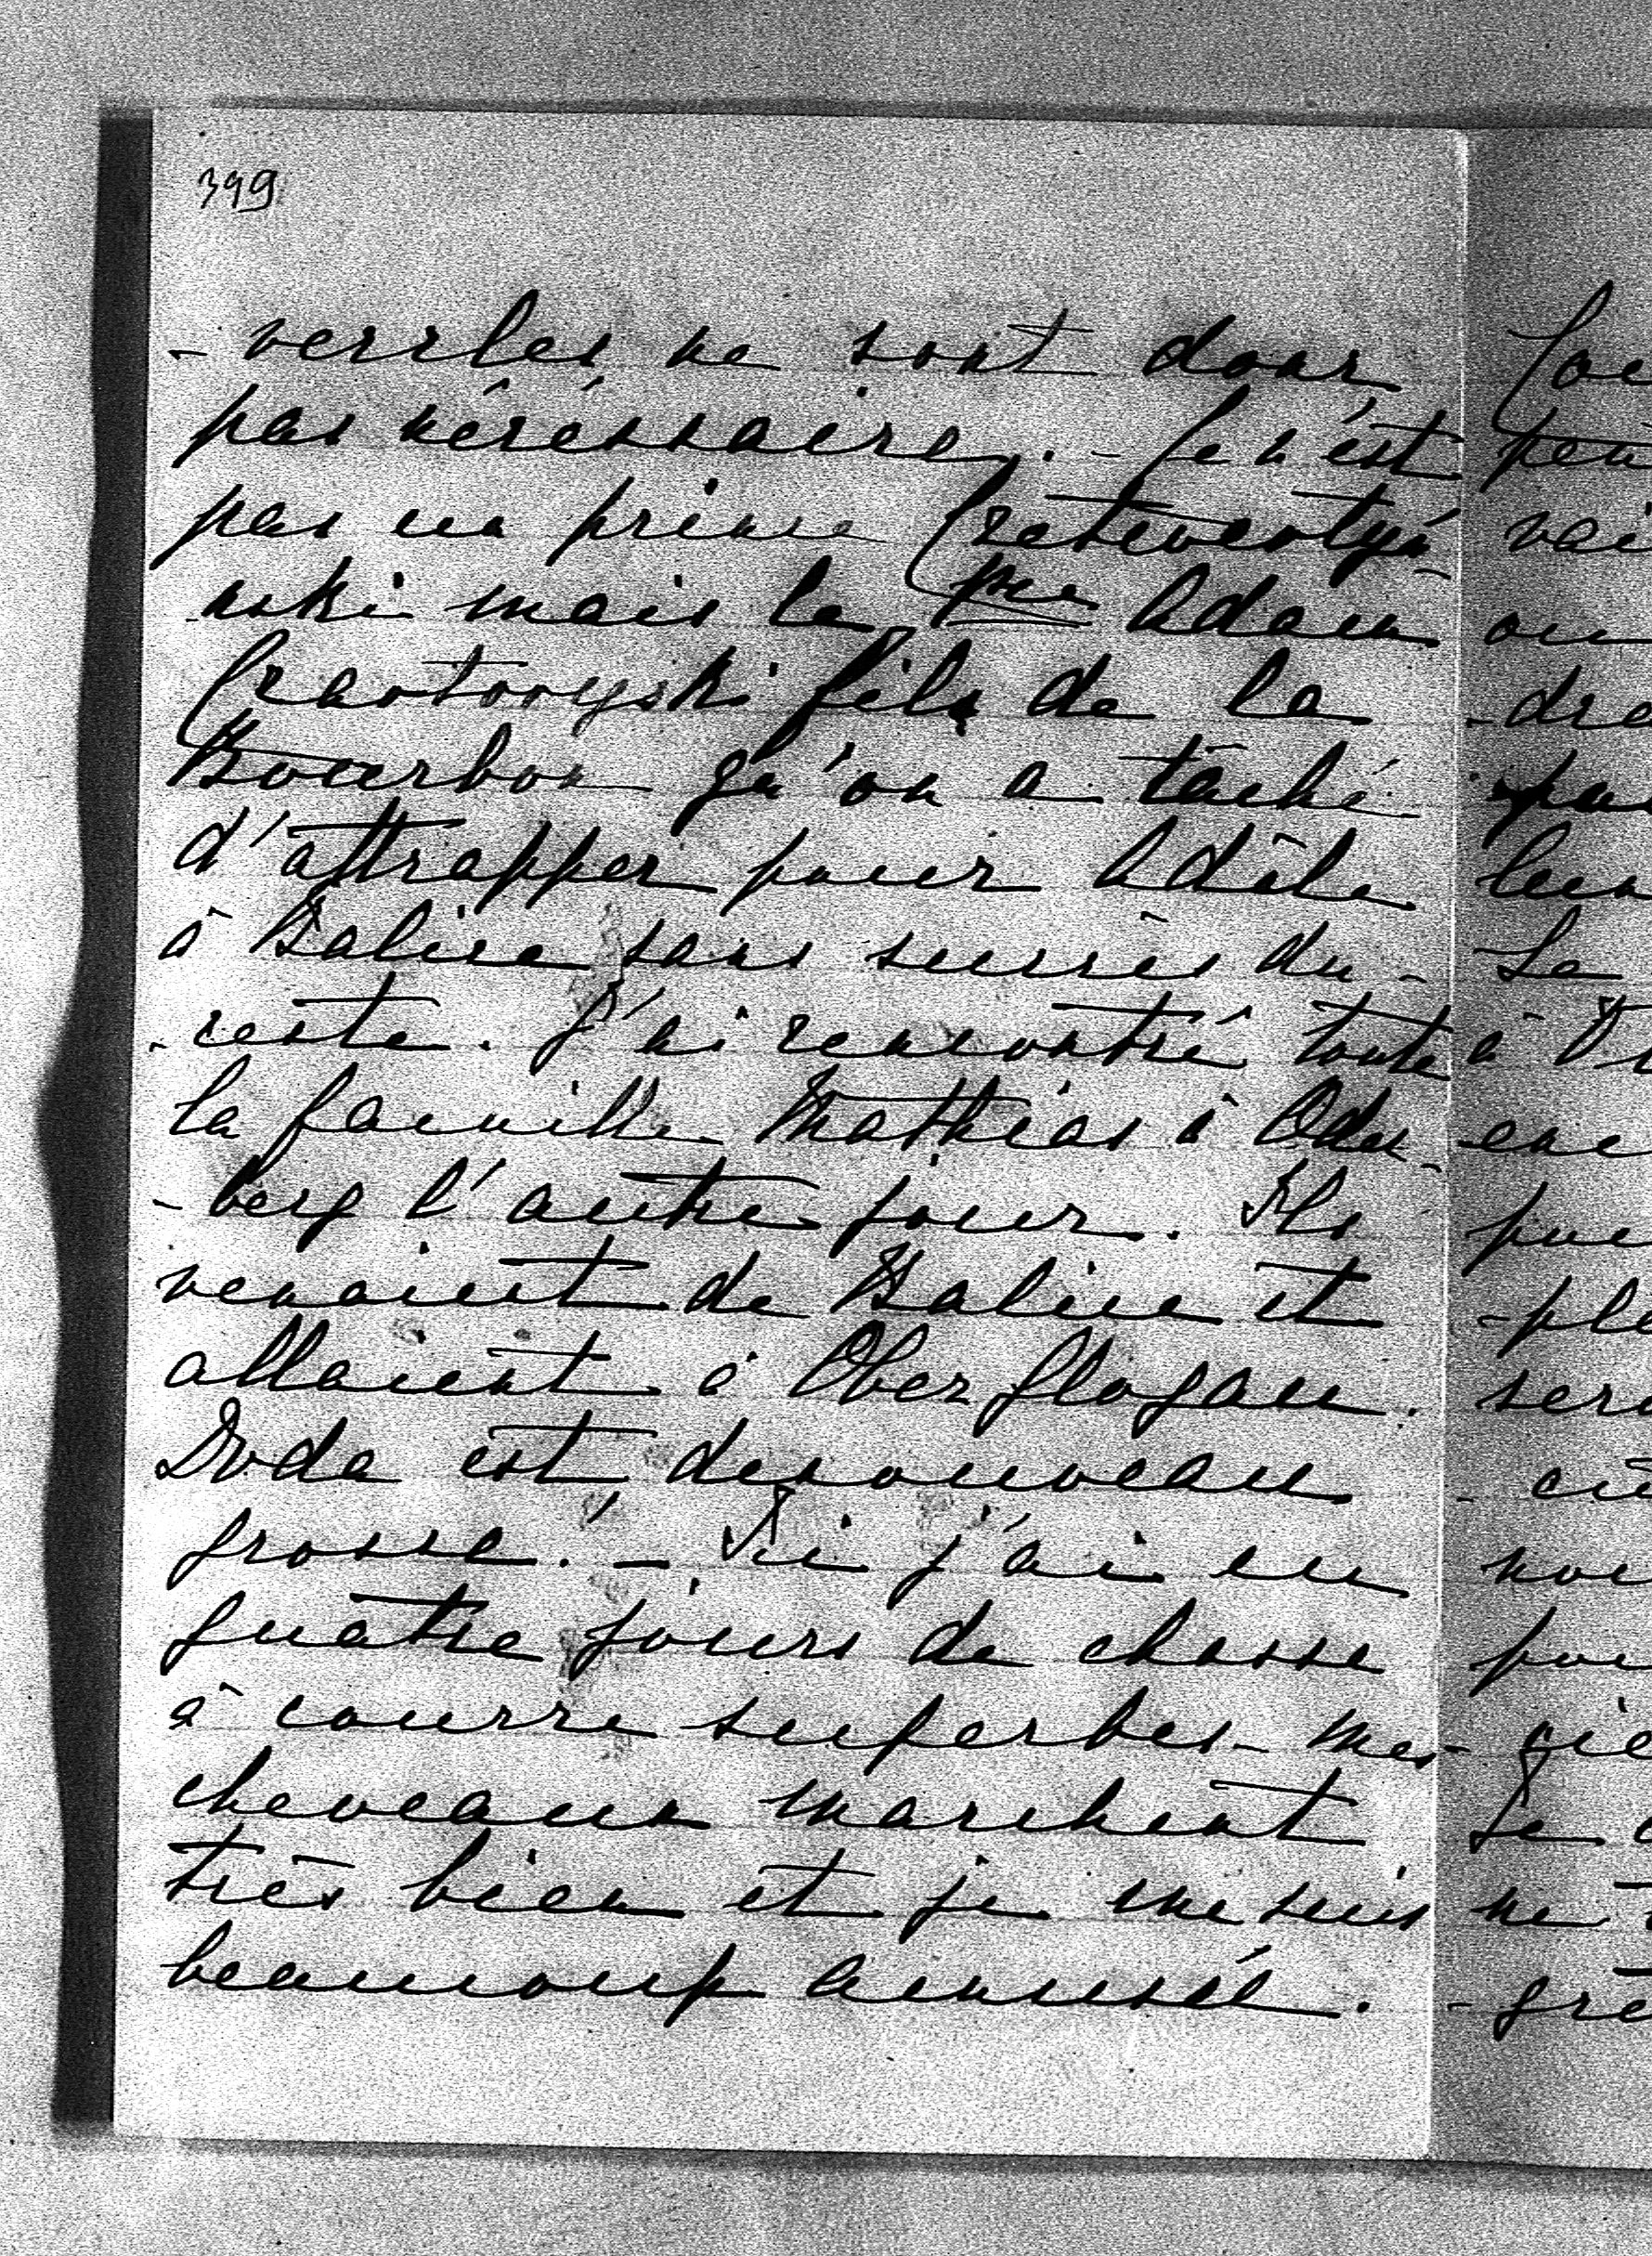 399
- verrles ne sont donc
pas nécéssaire. - Ce n'est
pas un prince Czetwerty-
- nski mais le pce Adam
Czartoryski fils de la
Bourbon qu'on a taché
d'attrapper pour Adèle
à Balice sans succès du -
- reste. J'ai rencontré toute
la famille Mathias à Oder-
- berg l'autre jour. Ils
venaient de Balice et
allaient à Oberglogau.
Doda est denouveau
grosse. - Ici j'ai eu
quatre jours de chasse
à courre superbes - mes -
cheveaux marchent
très bien et je me suis
beaucoup amusé.